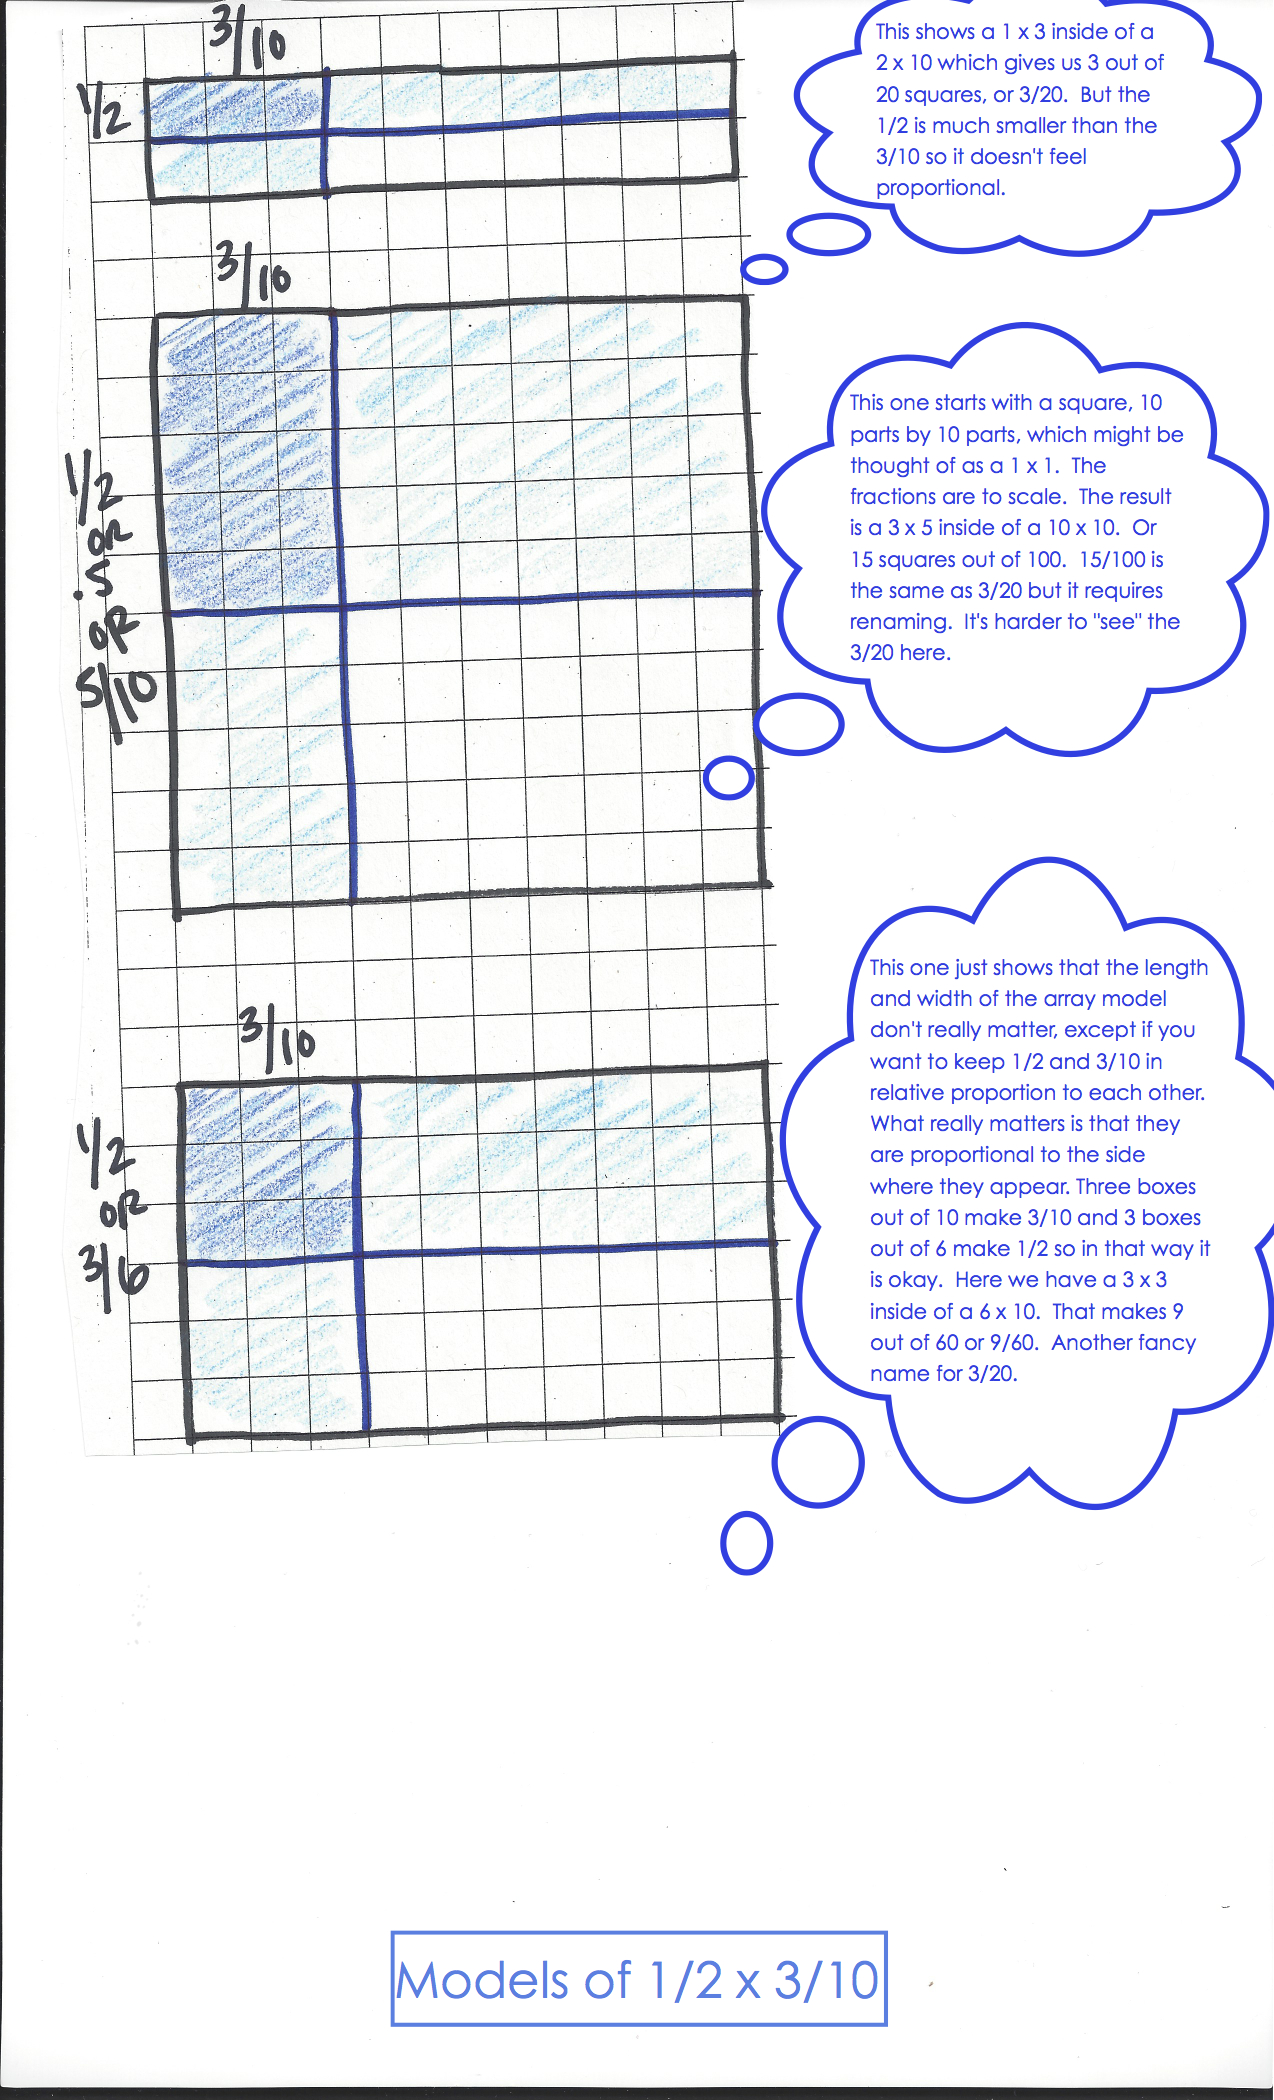 3/10
1/2
This shows a 1 x 3 inside of a
2 x 10 which gives us 3 out of
20 squares, or 3/20.  But the
1/2 is much smaller than the
3/10 so it doesn't feel
proportional.
3/10
1/2
OR
.5
OR
5/10
This one starts with a square, 10
parts by 10 parts, which might be
thought of as a 1 x 1.  The
fractions are to scale.  The result
is a 3 x 5 inside of a 10 x 10.  Or
15 squares out of 100.  15/100 is
the same as 3/20 but it requires
renaming.  It's harder to "see" the
3/20 here.
3/10
1/2
OR
3/6
This one just shows that the length
and width of the array model
don't really matter, except if you
want to keep 1/2 and 3/10 in
relative proportion to each other.
What really matters is that they
are proportional to the side
where they appear. Three boxes
out of 10 make 3/10 and 3 boxes
out of 6 make 1/2 so in that way it
is okay.  Here we have a 3 x 3
inside of a 6 x 10.  That makes 9
out of 60 or 9/60.  Another fancy
name for 3/20.
Models of 1/2 x 3/10